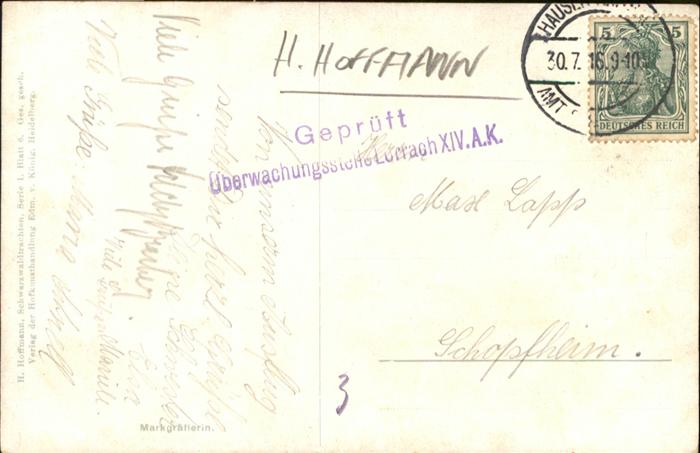 H. Hoffmann, Schwarzwaldtrachten, Serie I. Blatt 6. Ges. gesch.
Verlag der Hofkunsthandlung Edm. v. König, Heidelberg.
Von unserm Ausflug
sendet Dir herzl. Grüße
Elsa
Viele Grüße
Viele Grüße. Marie
Markgräflerin.
H. HOFFMANN
Geprüft
Überwachungsstelle Lörrach XIV. A.K.
30.7.16. 9-10
AMT
5 5
DEUTSCHES REICH
Herrn
Max Lapp
Schopfheim.
3